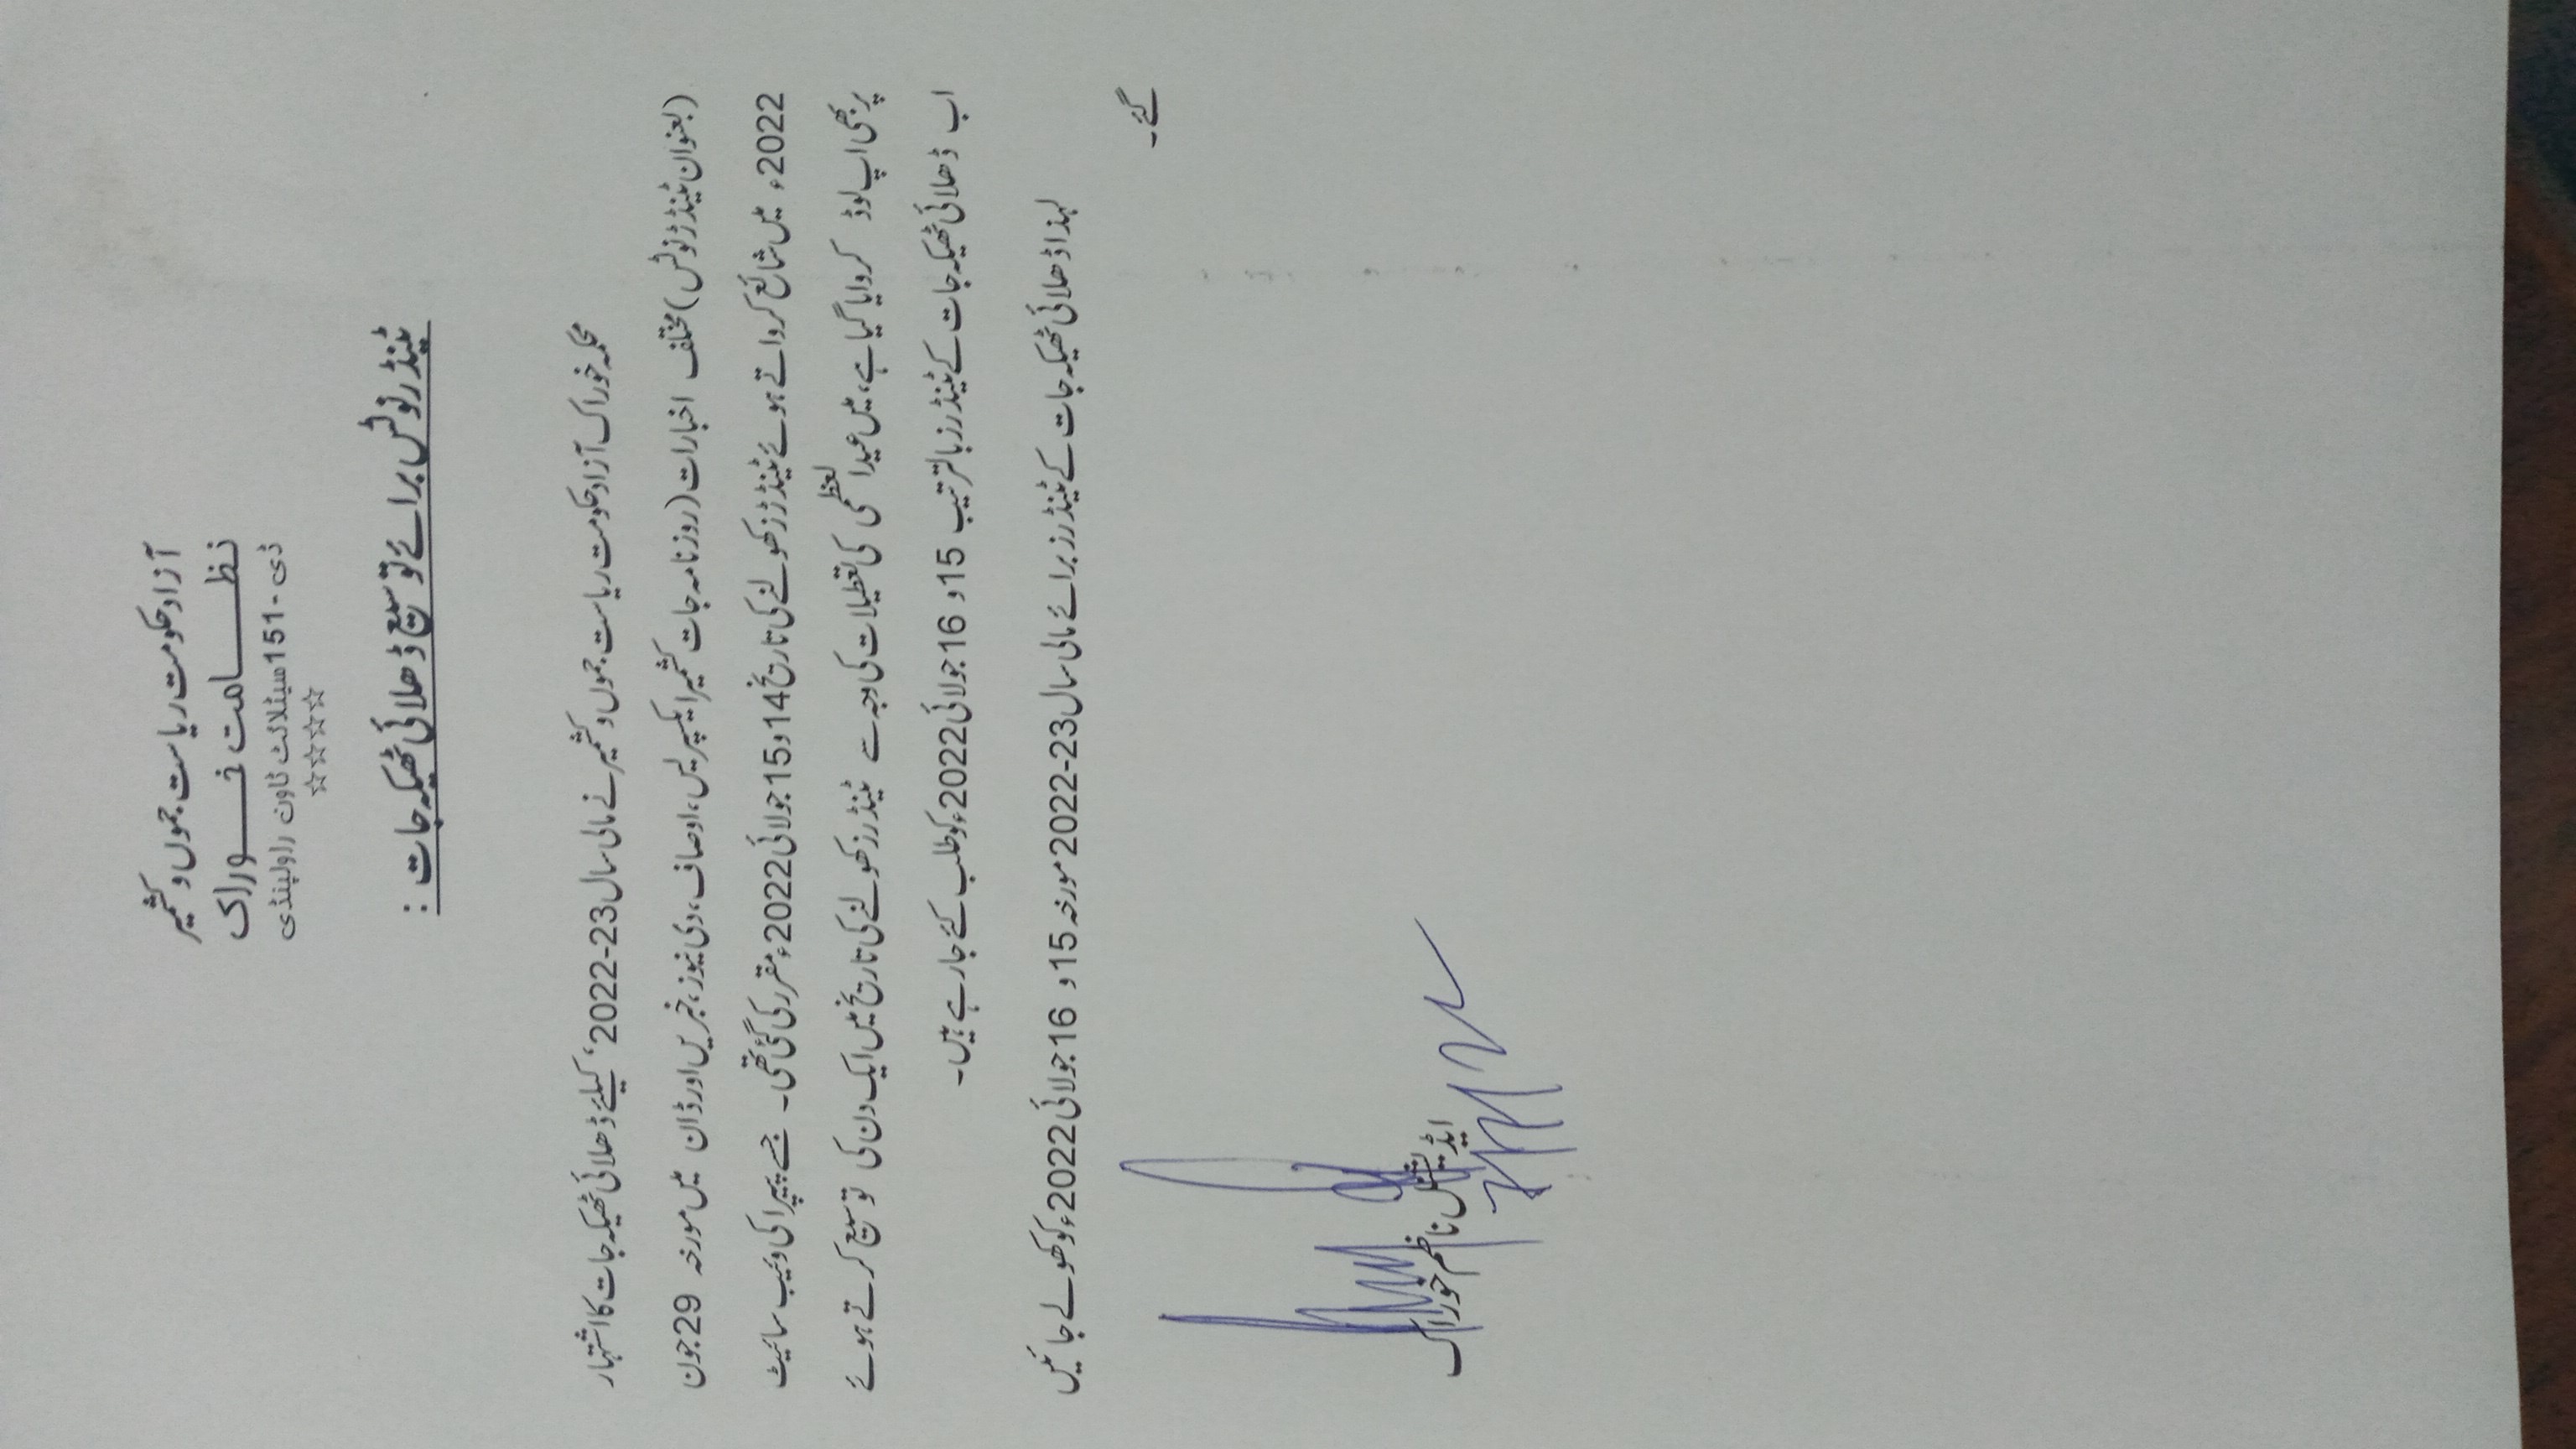 آزاد حکومت ریاست جموں و کشمیر
نظامت خوراک
ڈی-151 سیٹلائٹ ٹاون راولپنڈی
☆☆☆☆
ٹینڈر نوٹس برائے توسیع ڈھلائی ٹھیکہ جات :
محکمہ خوراک آزاد حکومت ریاست جموں و کشمیر نے مالی سال 23-2022ء کیلئے ڈھلائی ٹھیکہ جات کا اشتہار
(بعنوان ٹینڈر نوٹس) مختلف اخبارات (روزنامہ جات کشمیر ایکسپریس، اوصاف، دی نیوز، خبریں اور ڈان میں مورخہ 29 جون
2022ء میں شائع کرواتے ہوئے ٹینڈرز کھولنے کی تاریخ 14 و 15 جولائی 2022ء مقرر کی گئی تھی۔ جسے پیپرا کی ویب سائیٹ
پر بھی اپ لوڈ کروایا گیا ہے، میں عید العظمی کی تعطیلات کی وجہ سے ٹینڈرز کھولنے کی تاریخ میں ایک دن کی توسیع کرتے ہوئے
اب ڈھلائی ٹھیکہ جات کے ٹینڈرز بالترتیب 15 و 16 جولائی 2022ء کو طلب کئے جا رہے ہیں۔
لہذا ڈھلائی ٹھیکہ جات کے ٹینڈرز برائے مالی سال 23-2022 مورخہ 15 و 16 جولائی 2022ء کو کھولے جائیں
گئے۔
ایڈیشنل ناظم خوراک